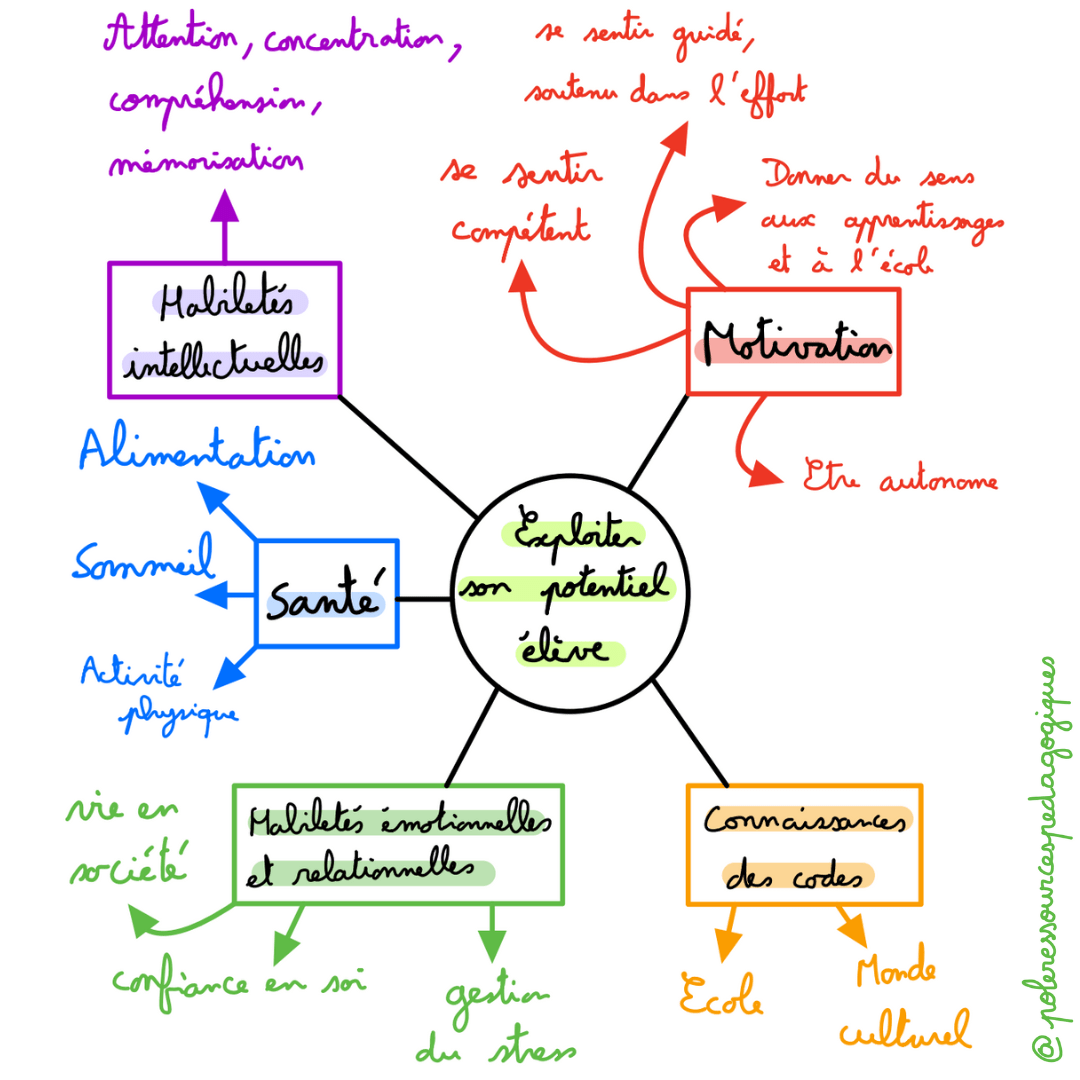 Attention, concentration,
compréhension,
mémorisation
Habiletés
intellectuelles
se sentir guidé,
soutenu dans l'effort
se sentir
compétent
Donner du sens
aux apprentissages
et à l'école
Motivation
Etre autonome
Alimentation
Sommeil
Santé
Activité
physique
Exploiter
son potentiel
élève
Habiletés émotionnelles
et relationnelles
vie en
société
confiance en soi
gestion
du stress
Connaissances
des codes
Ecole
Monde
culturel
@poleressourcespedagogiques